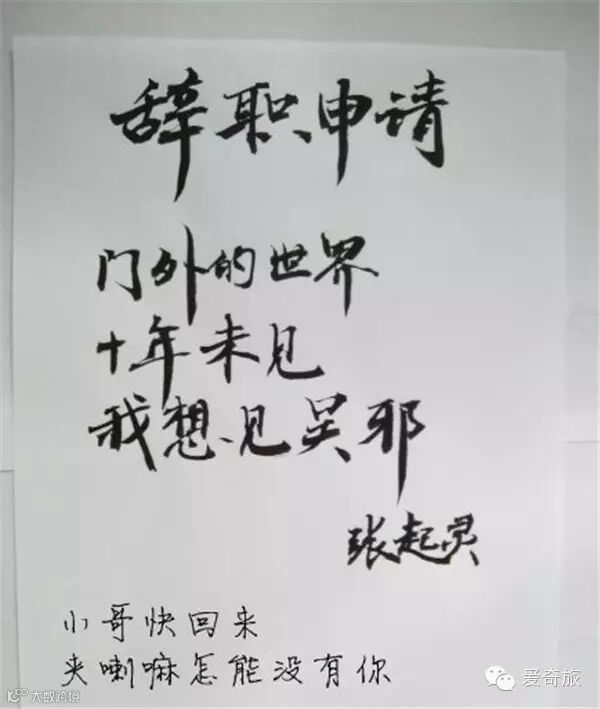 辞职申请
门外的世界
十年未见
我想见吴邪
张起灵
小哥快回来
夹喇嘛怎能没有你
爱奇旅
10100 大数跨境